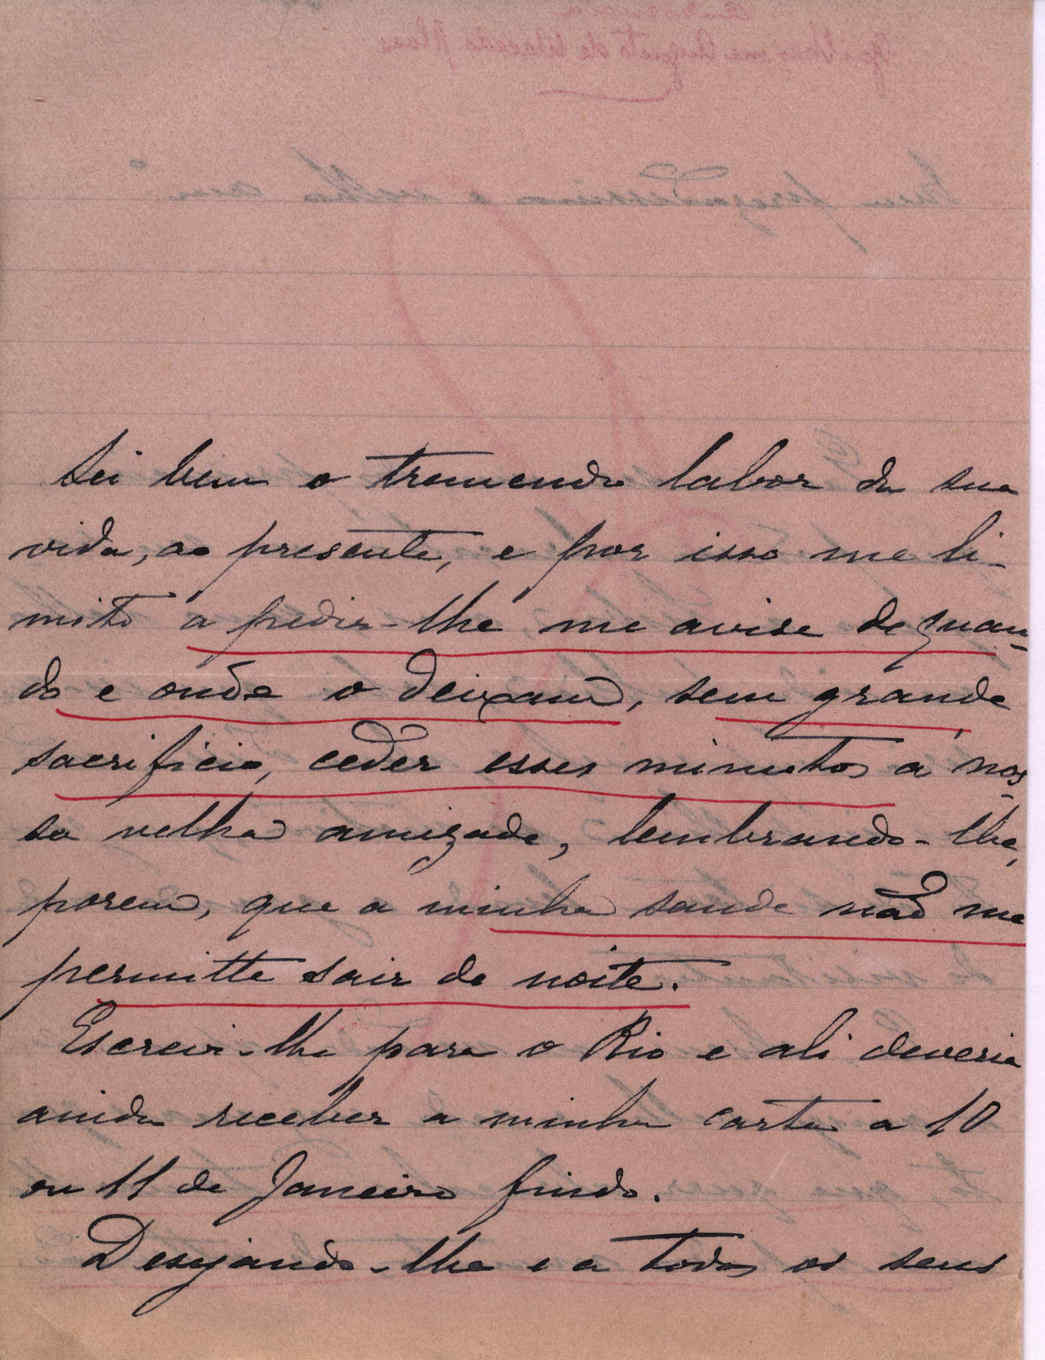 Sei bem o tremendo labor da sua
vida, ao presente, e por isso me li-
mito a pedir-lhe me avise de quan-
do e onde o deixam, sem grande
sacrificio, ceder esses minutos á nos-
sa velha amizade, lembrando-lhe,
porem, que a minha saude não me
permitte sair de noite.
Escrevi-lhe para o Rio e ali deveria
ainda receber a minha carta a 10
ou 11 de Janeiro findo.
Desejando-lhe e a todos os seus